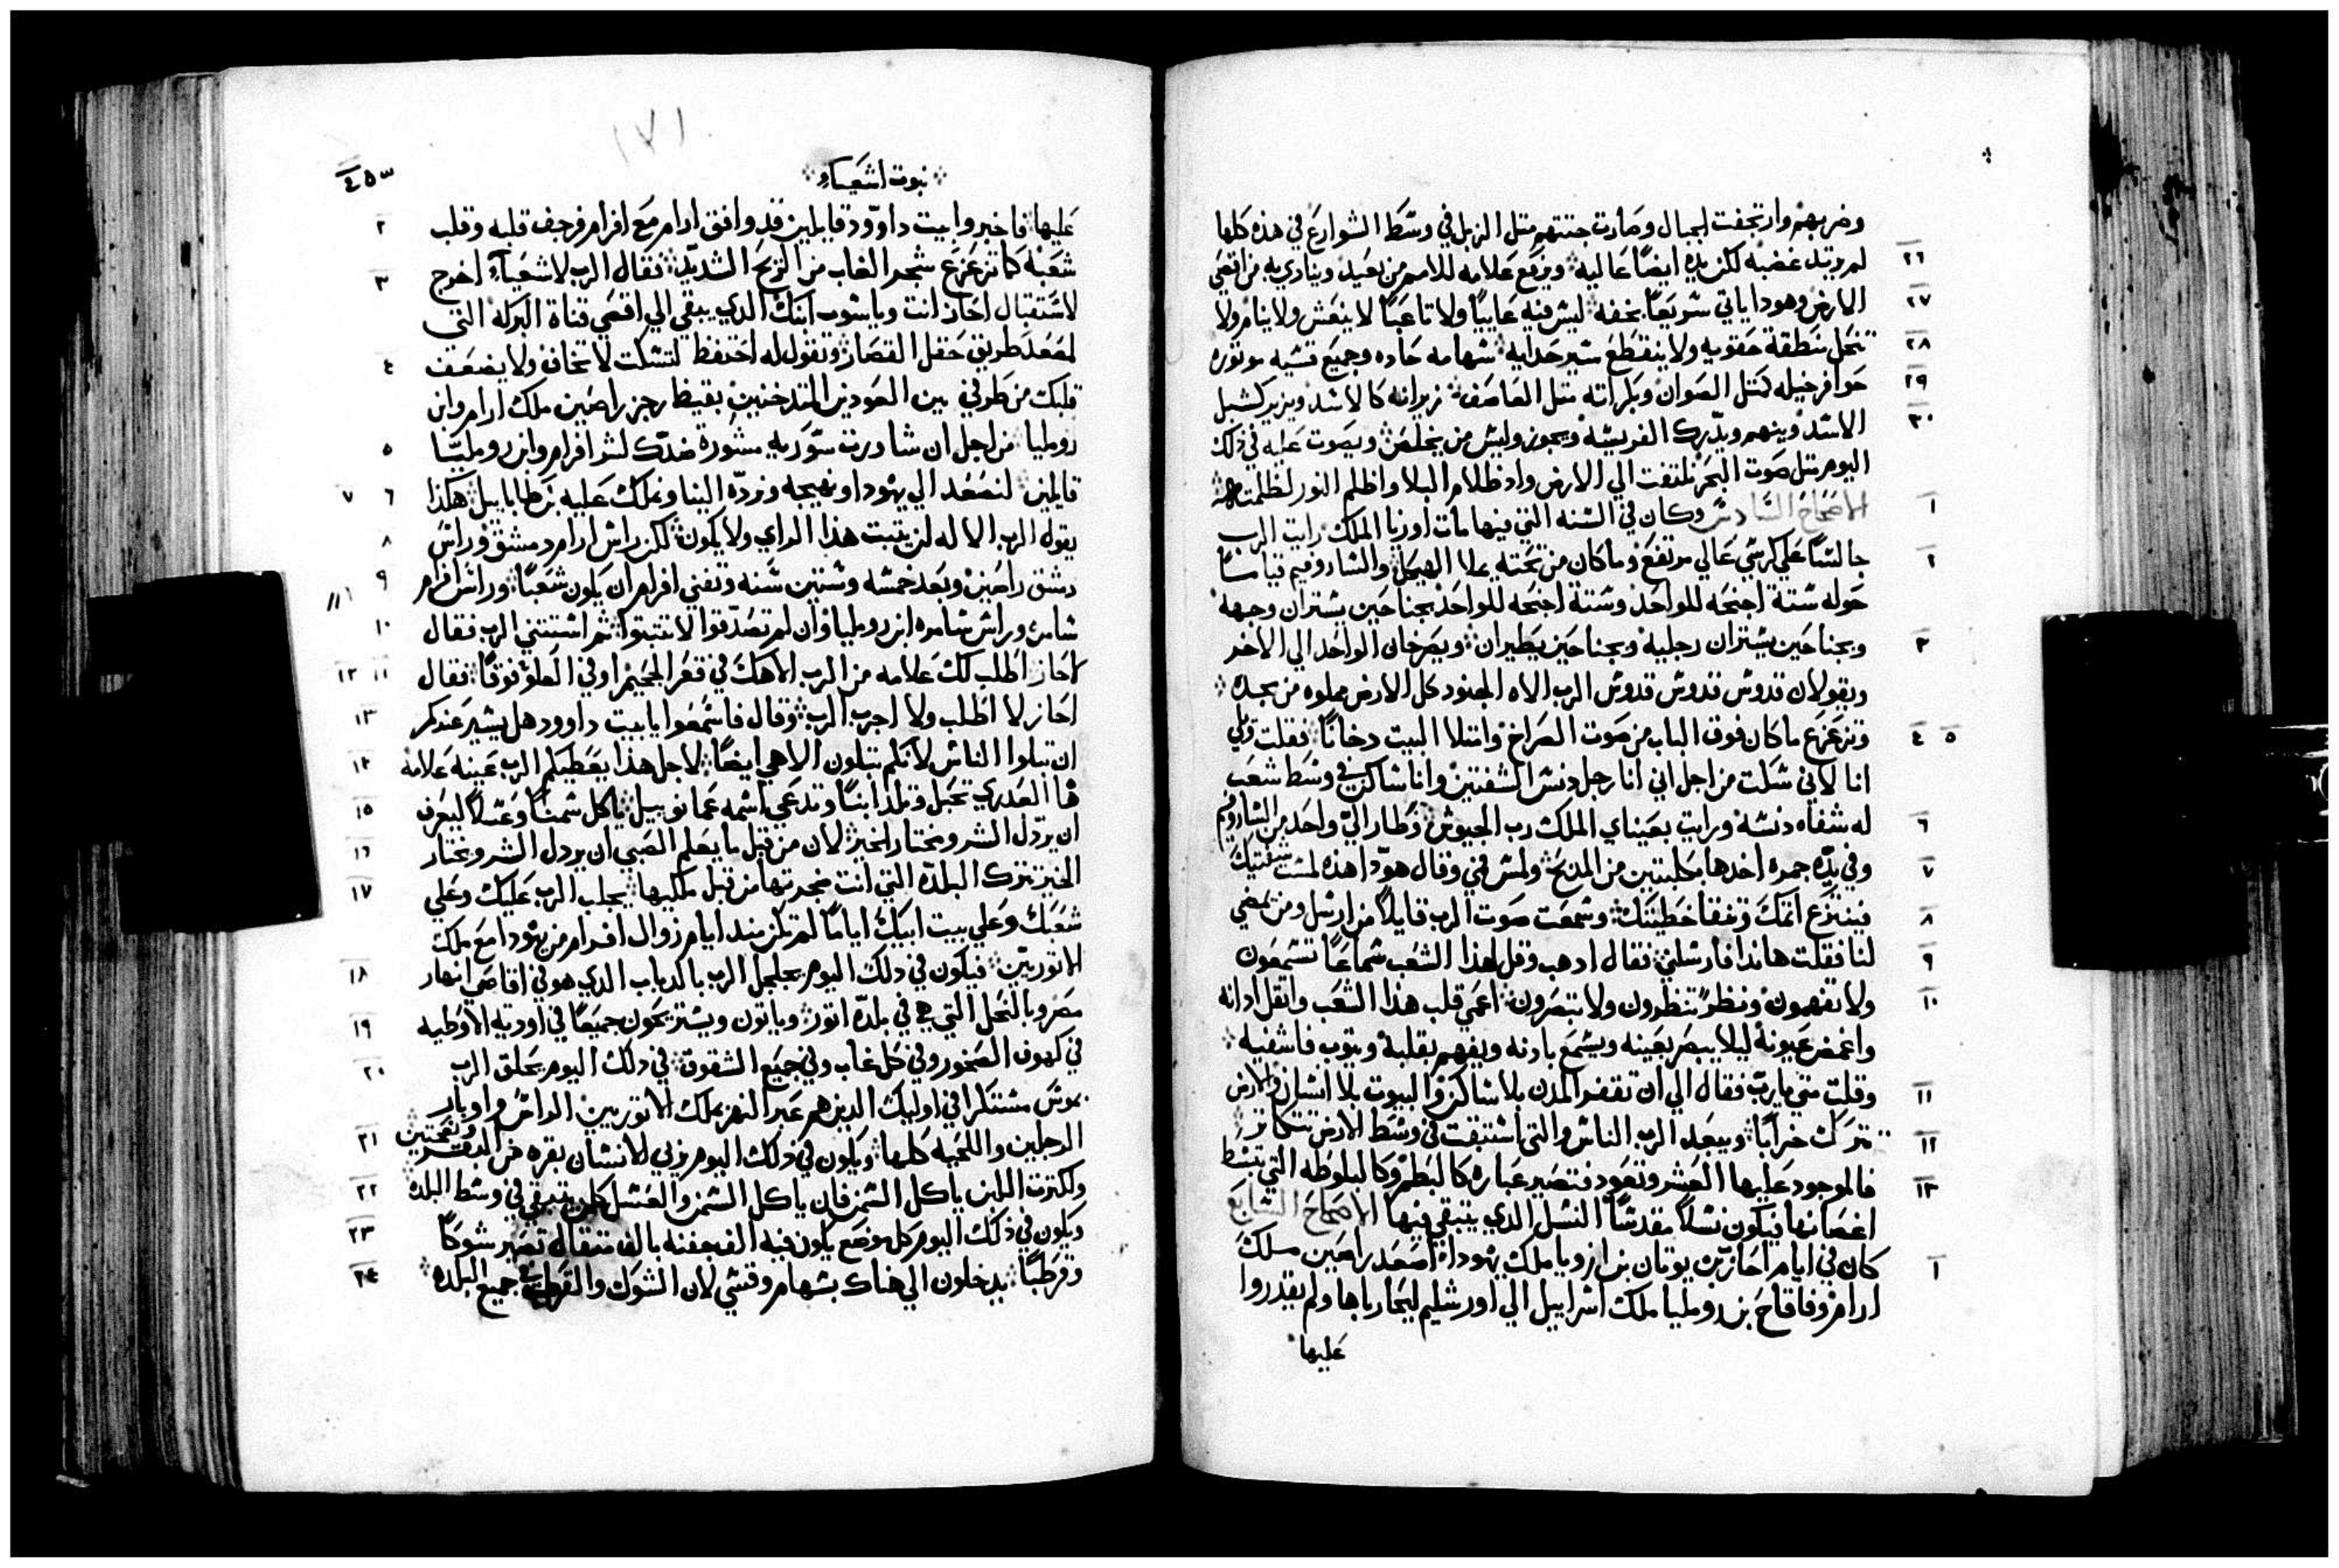 وضربهم وارتجفت الجبال وصارت جثتهم متل الزبل في وسَط الشوارع في هذه كلها
٢٦ لم يرتد غضبه لكن يده ايضًا عاليه ويرفع علامه للامم من بعيد وينادي به من اقصَي
٢٧ الارض وهودا ياتي سَريعًا بخفه ليس فيه عَاييًا ولا تاعبًا لا ينعَس ولا ينام ولا
٢٨ تنحَل منطقة حقويه ولا ينقطع سير حداية سهامه حَاده وجميع قسيه موتوره
٢٩ حوافر خيله كمتل الصوان وبكراته متل العاصَف زيرانه كالاسَد ويزير كشبل
٣٠ الاسَد وينهم ويدّرك الفريسَه ويحوز وليس من يخلصَ ويصَوت عَليه في ذلك
اليوم متل صَوت البحَر نلتفت الي الارض واذ ظلام البلا واظلم النور لظلمتاهـه
١ الاصَحَاح السَّادسَ وكان في السَنه التي فيها مات اوزيا الملك رايت الرب
٢ جالسًا علي كرسَي عَالي مرتفع وما كان من تحته يملا الهيكل والسَاروفيم قيامسًا
حَوله سَتة اجنحَه للواحَد وسَتة اجنحَه للواحَد بجناحَين يسَتران وجهه
٣ وبجناحَين يسَتران رجليه وبجناحَين يطيران ويصَرخان الواحَد الي الاخر
ويقولان قدوسَ قدوسَ قدوسَ الرب الاه الجنود كل الارض مملوه من مجده
٥ ٤ وتزعزع ما كان فوق الباب من صَوت الصَراخ وامتلا البيت دخانًا فقلت ويلي
انا لاني سَكت من اجل اني انا رجل دنسَ الشفتين وانا سَاكن في وسَط شعَب
٦ له شفاه دنسَه ورايت بعَيناي الملك رب الجيوش فطار اليّ واحَد من السَاروفيم
٧ وفي يدّه جمره اخدها بكلبتين من المدبَح ولمسَ في وقال هودا هذه لمسَت شفتيك
٨ فينتزع اتمك وتنقا خطيتك وسَمعت صَوت الرب قايلًا من ارسَل ومن يمضي
٩ لنا فقلت هاندا فارسَلني فقال ادهب وقل لهذا الشعَب سَماعًا تسَمعَون
١٠ ولا تفهمون ونظرًا تنظرون ولا تبصَرون اعمي قلب هذا الشعَب واتقل ادانه
واغمض عَيونه ليلا يبصَر بعَينه ويسَمع بادنه ويفهم بقلبه ويتوب فاشفيه
١١ وقلت متي يا رب فقال الي ان تقفر المدن بلا سَاكن والبيوت بلا انسَان والارض
١٢ تترك خرابًا ويبعد الرب الناسَ والتي اسَتبقت في وسَط الارض تتكاتر
١٣ فالموجود عَليها العشر وتعود فتصَير عبارة كالبطم وكالبلوطه التي تبسَط
اغصَانها فيكون نسَلًا مقدسًا النسَل الدي يتبقي فيها الاصَحَاح السَابع
١ كان في ايام احَاز بن يوتان بن ازويا ملك يهودا اصَعد راصَين ملك
ارام وفاقاح بن روميليا ملك اسَراييل الي اورشليم ليحَارباها ولم يقدروا
عَليها
نبوت اشعَياء
٤٥٣
١٧١
٢ عَليها فاخبروا بيت داوّود قايلين قد وافق ارام مَع افرام فرجف قلبه وقلب
٣ شعَبه كما تزعزع شجر الغاب من الريَح الشديد فقال الرب لاشعَياء اخرج
لاسَتقبال احَاز انت وياشوب ابنك الدي يبقي الي اقصَي قناة البركه التي
٤ لمصَعد طريق حَقل القصَار وتقول له احَتفظ لتسَكت لا تخاف ولا يضعَف
قلبك من طرفي بين العَودين المتدخنين بغيظ رجز راصَين ملك ارام وابن
٥ روميليا من اجل ان شاورت سَوريه مشورة ضدّك لشر افرام وابن روميليّا
٦ ٧ قايلين لنصَعَد الي يهودا ونهيجه ونردّه الينا ونملك عَليه بن طاباييل هكذا
٨ يقول الرب الاله لن يتبت هذا الراي ولا يكون لكن راسَ ارام دمشق وراسَ
٩ دمشق راصَين وبَعد خمسَه وسَتين سَنه وتفني افرام ان يكون شعَبًا وراسَ افرام
١٠ سَامره وراسَ سَامره ابن روميليا وان لم تصَدّقوا لا تتبتوا تم اسَتتني الرب فقال
١١ ١٢ لاحَاز اطلب لك عَلامه من الرب الاهك في قعر الجحَيم او في العلو فوقًا فقال
١٣ احَاز لا اطلب ولا اجرب الرب وقال فاسَمعَوا يا بيت داوود هل يسَير عَندكم
١٤ ان تبلوا الناسَ لانكم تبلون الاهي ايضًا لاجل هذا يعَطيكم الرب عَينه عَلامه
١٥ ها العَدري تحَبل وتلد ابنًا وتدعَي اسَمه عَمانوييل ياكل سَمنًا وعَسَلًا ليعَرف
١٦ ان يردّل الشر ويختار الخير لان من قبل ما يعَلم الصَبي ان يردل الشر ويختار
١٧ الخير تترك البلدّه التي انت ضجرتها من قبل ملكيها يجلب الرب عَليك وعَلي
شعَبك وعَلي بيت ابيك ايامًا لم تكن مند ايام زوال افرام من يهودا مَع ملك
١٨ الاتوريين فيكون في دلك اليوم يجلجل الرب بالدباب الدي هو في اقاصَي انهار
١٩ مصَر وبالنحَل التي هي في بلدّة اتور وياتون ويسَتريحَون جميعًا في اودية الاوطيه
٢٠ في كهوف الصَخور وفي كل غاب وفي جميَع الشقوق في دلك اليوم يحَلق الرب
بموسَ مسَتكرا في اوليك الدين هم عَبر النهر بملك الاتوريين الراسَ واوبار
٢١ الرجلين واللحَيه كلها ويكون في دلك اليوم يربي الانسَان بقره من البقر ونعَجتين
٢٢ ولكترت اللبن ياكل السَمن فان ياكل السَمن والعَسَل كلمن يتبقي في وسَط البلده
٢٣ ويكون في دلك اليوم كل موضَع يكون فيه الف جفنه بالف متقال تصَير شوكًا
٢٤ وقرطبًا يدخلون الي هناك بسَهام وقسَي لان الشوك والقرطب في جميع البلده